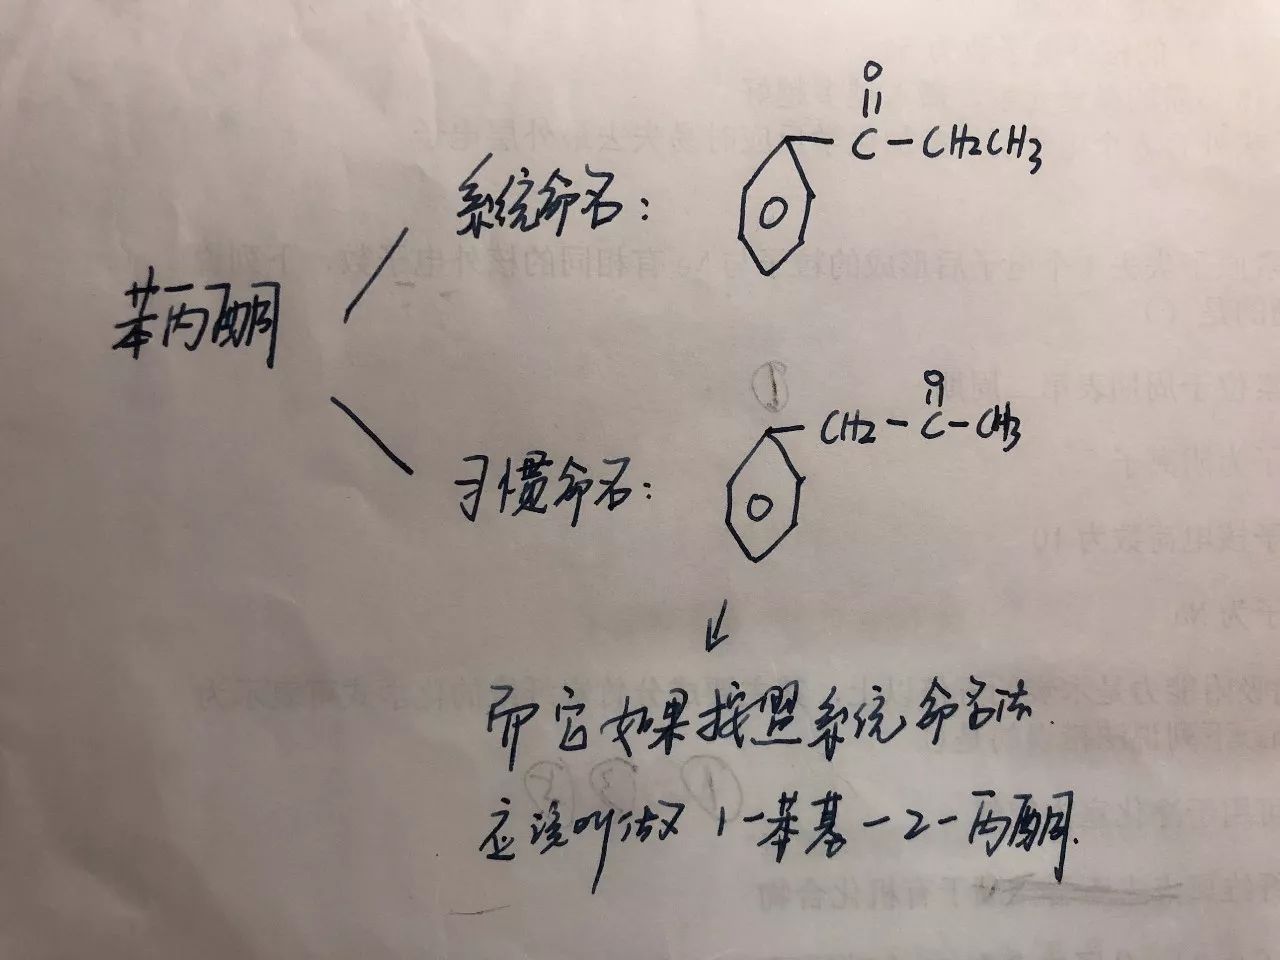 苯丙酮
系统命名：
O
C-CH2CH3
习惯命名：
①
O
CH2-C-CH3
而它如果按照系统命名法
应该叫做 1-苯基-2-丙酮.